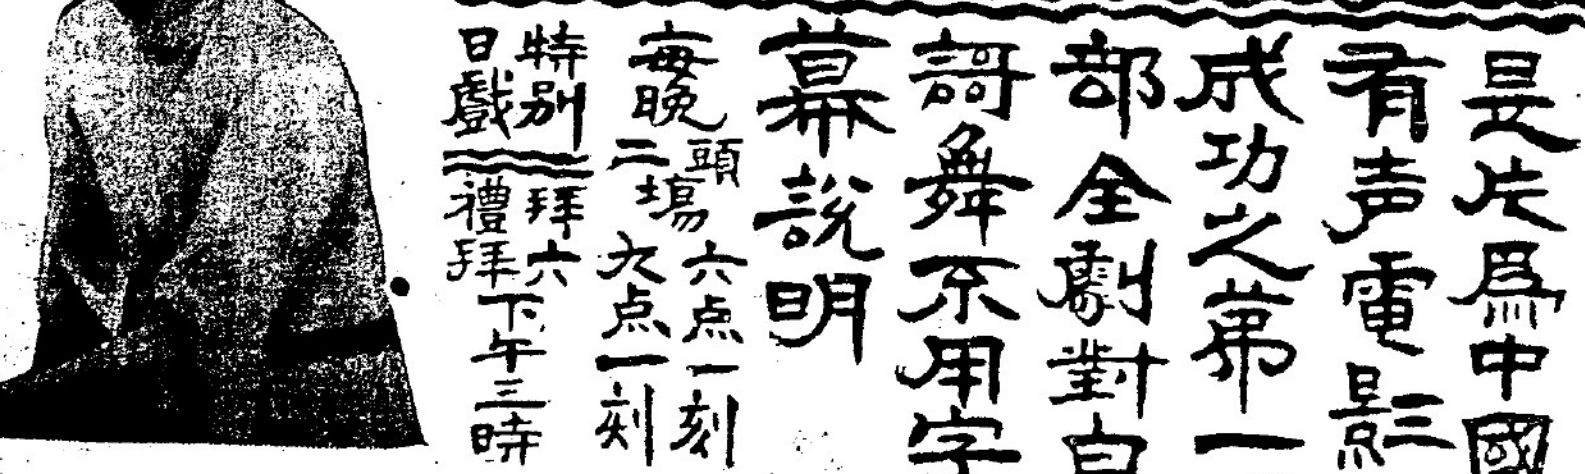 是片爲中國
有声電影
成功之第一
部全劇對白
謌舞不用字
幕說明
每晚
頭
二
塲
六点一刻
九点一刻
特别
日戲
拜六
禮拜
下午三時